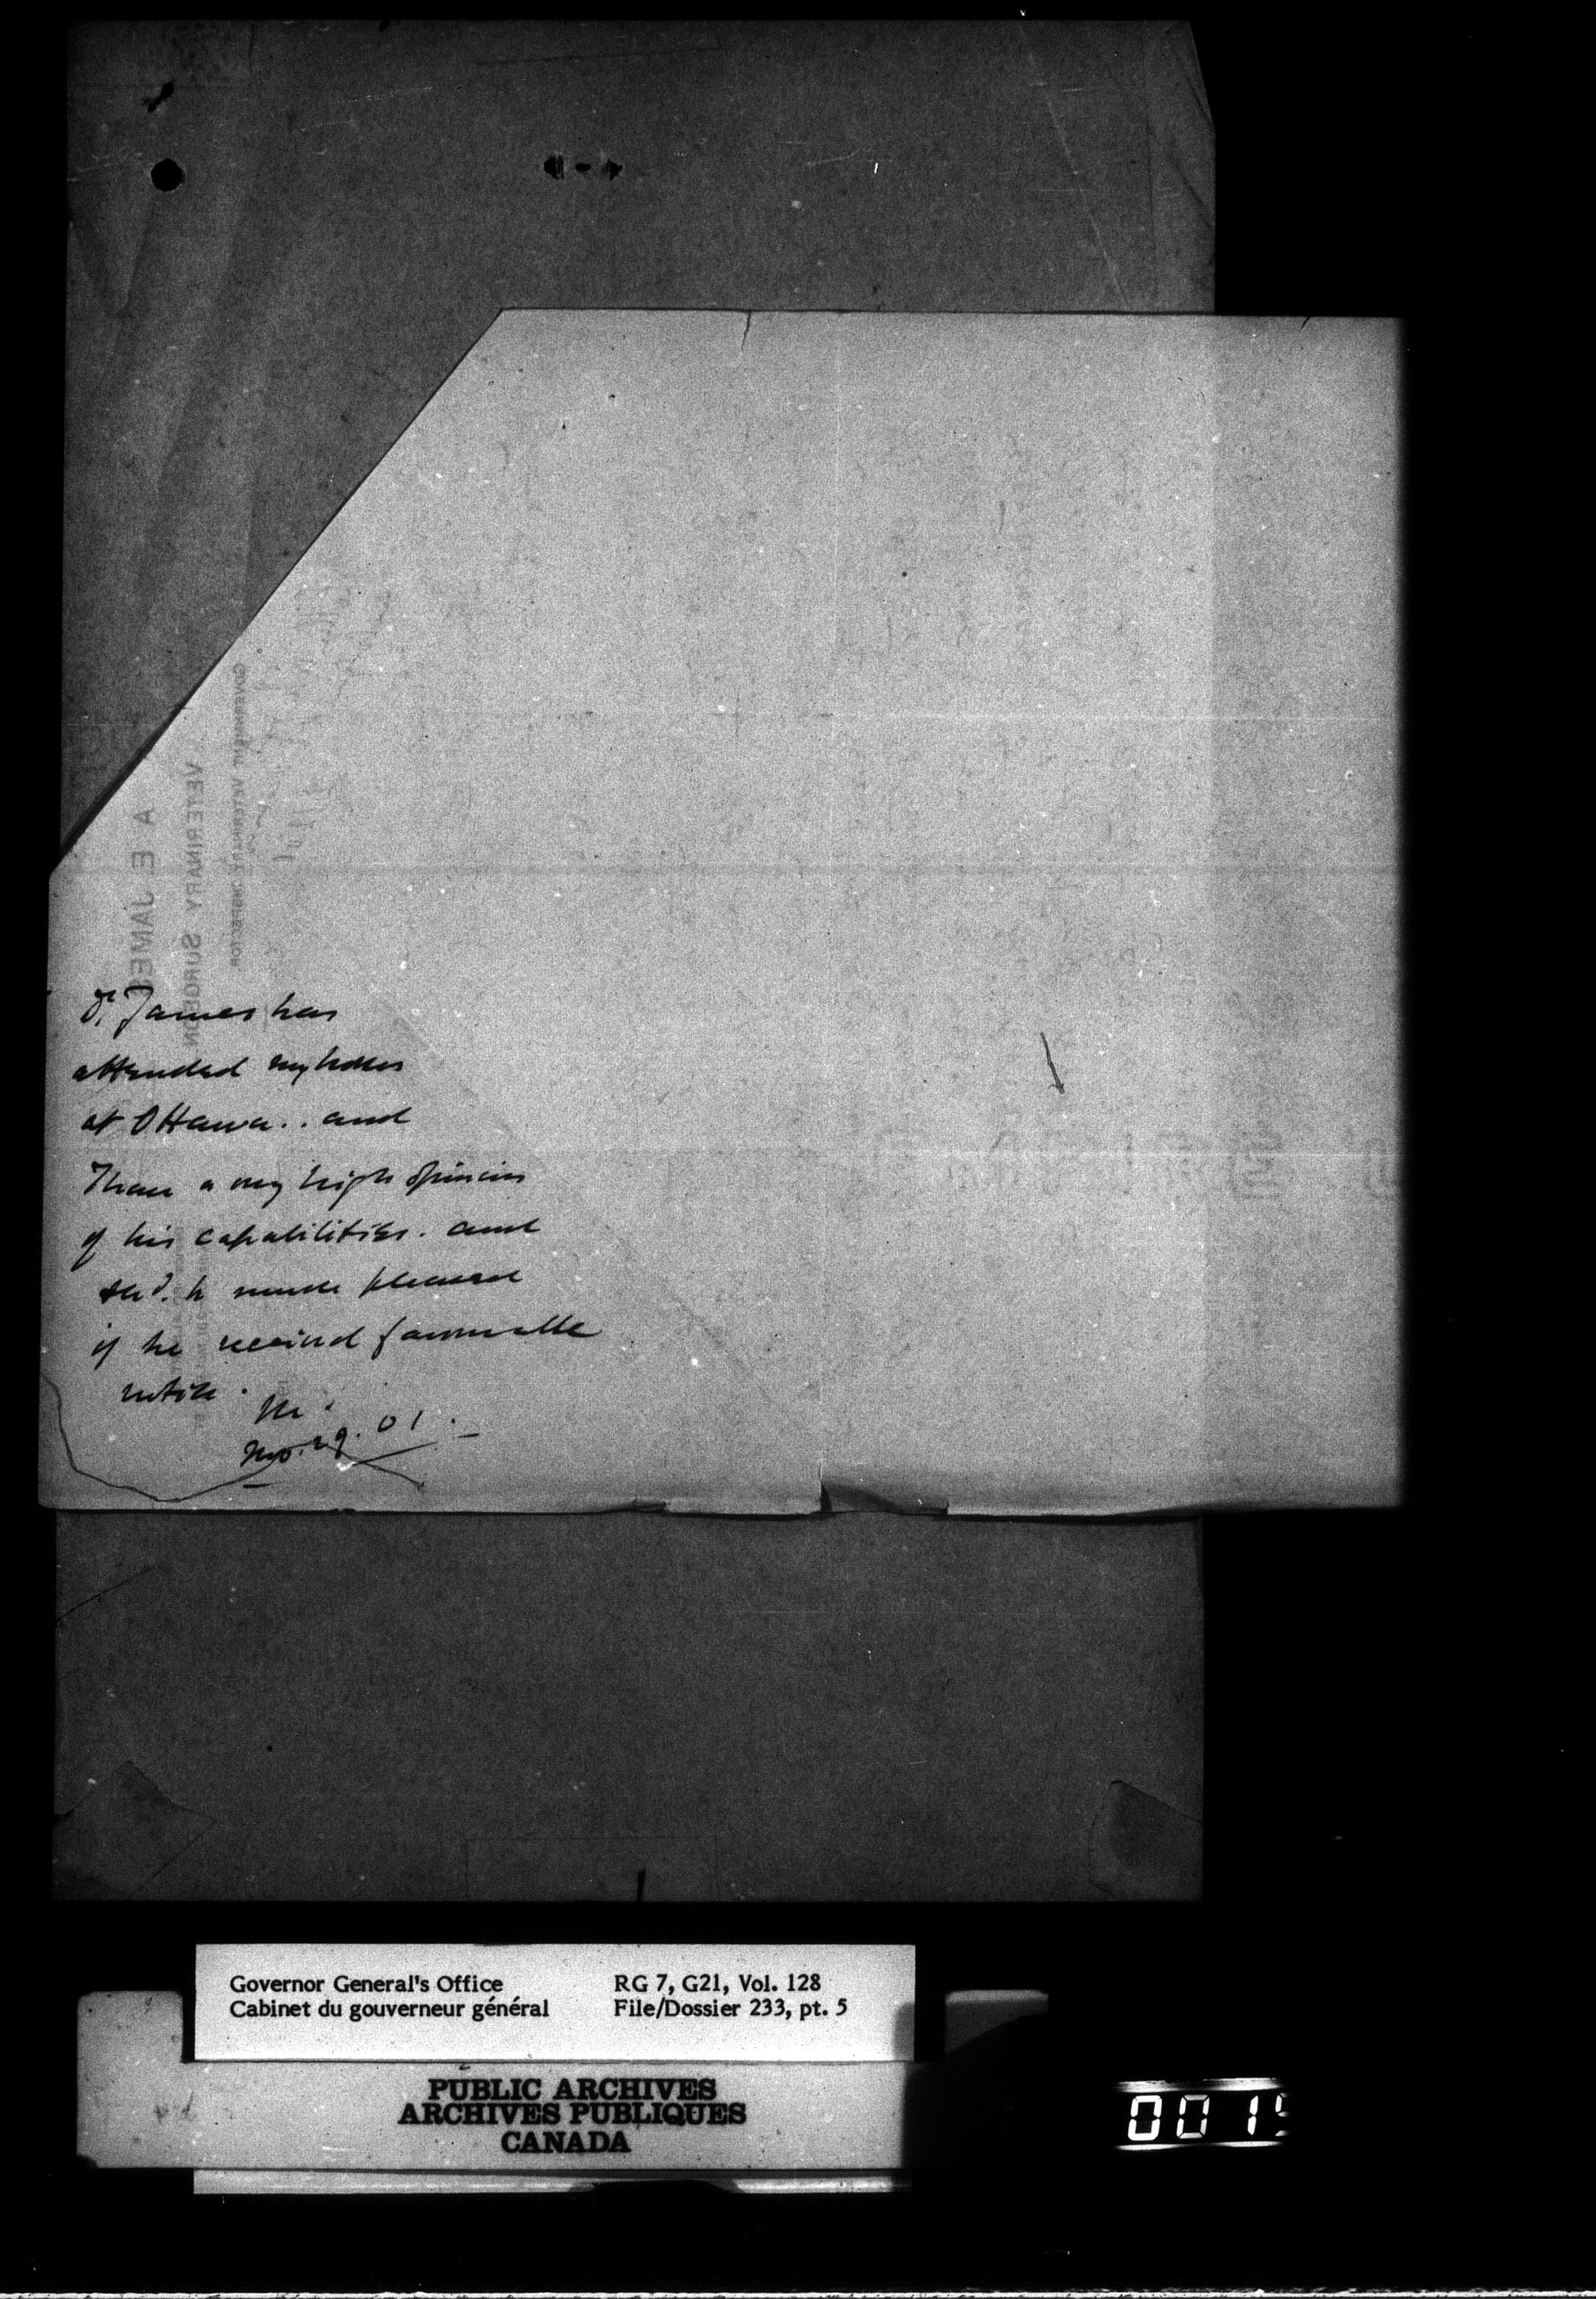 A E JAMES
VETERINARY SURGEON
GOVERNMENT VETERINARY INSPECTOR
Dr. James has
attended my horses
at Ottawa.. and
I have a very high opinion
of his capabilities. and
shd. be much pleased
if he received favourable
notice.
M.
Nov. 29. 01.
Governor General's Office RG 7, G21, Vol. 128
Cabinet du gouverneur général File/Dossier 233, pt. 5
PUBLIC ARCHIVES
ARCHIVES PUBLIQUES
CANADA
001